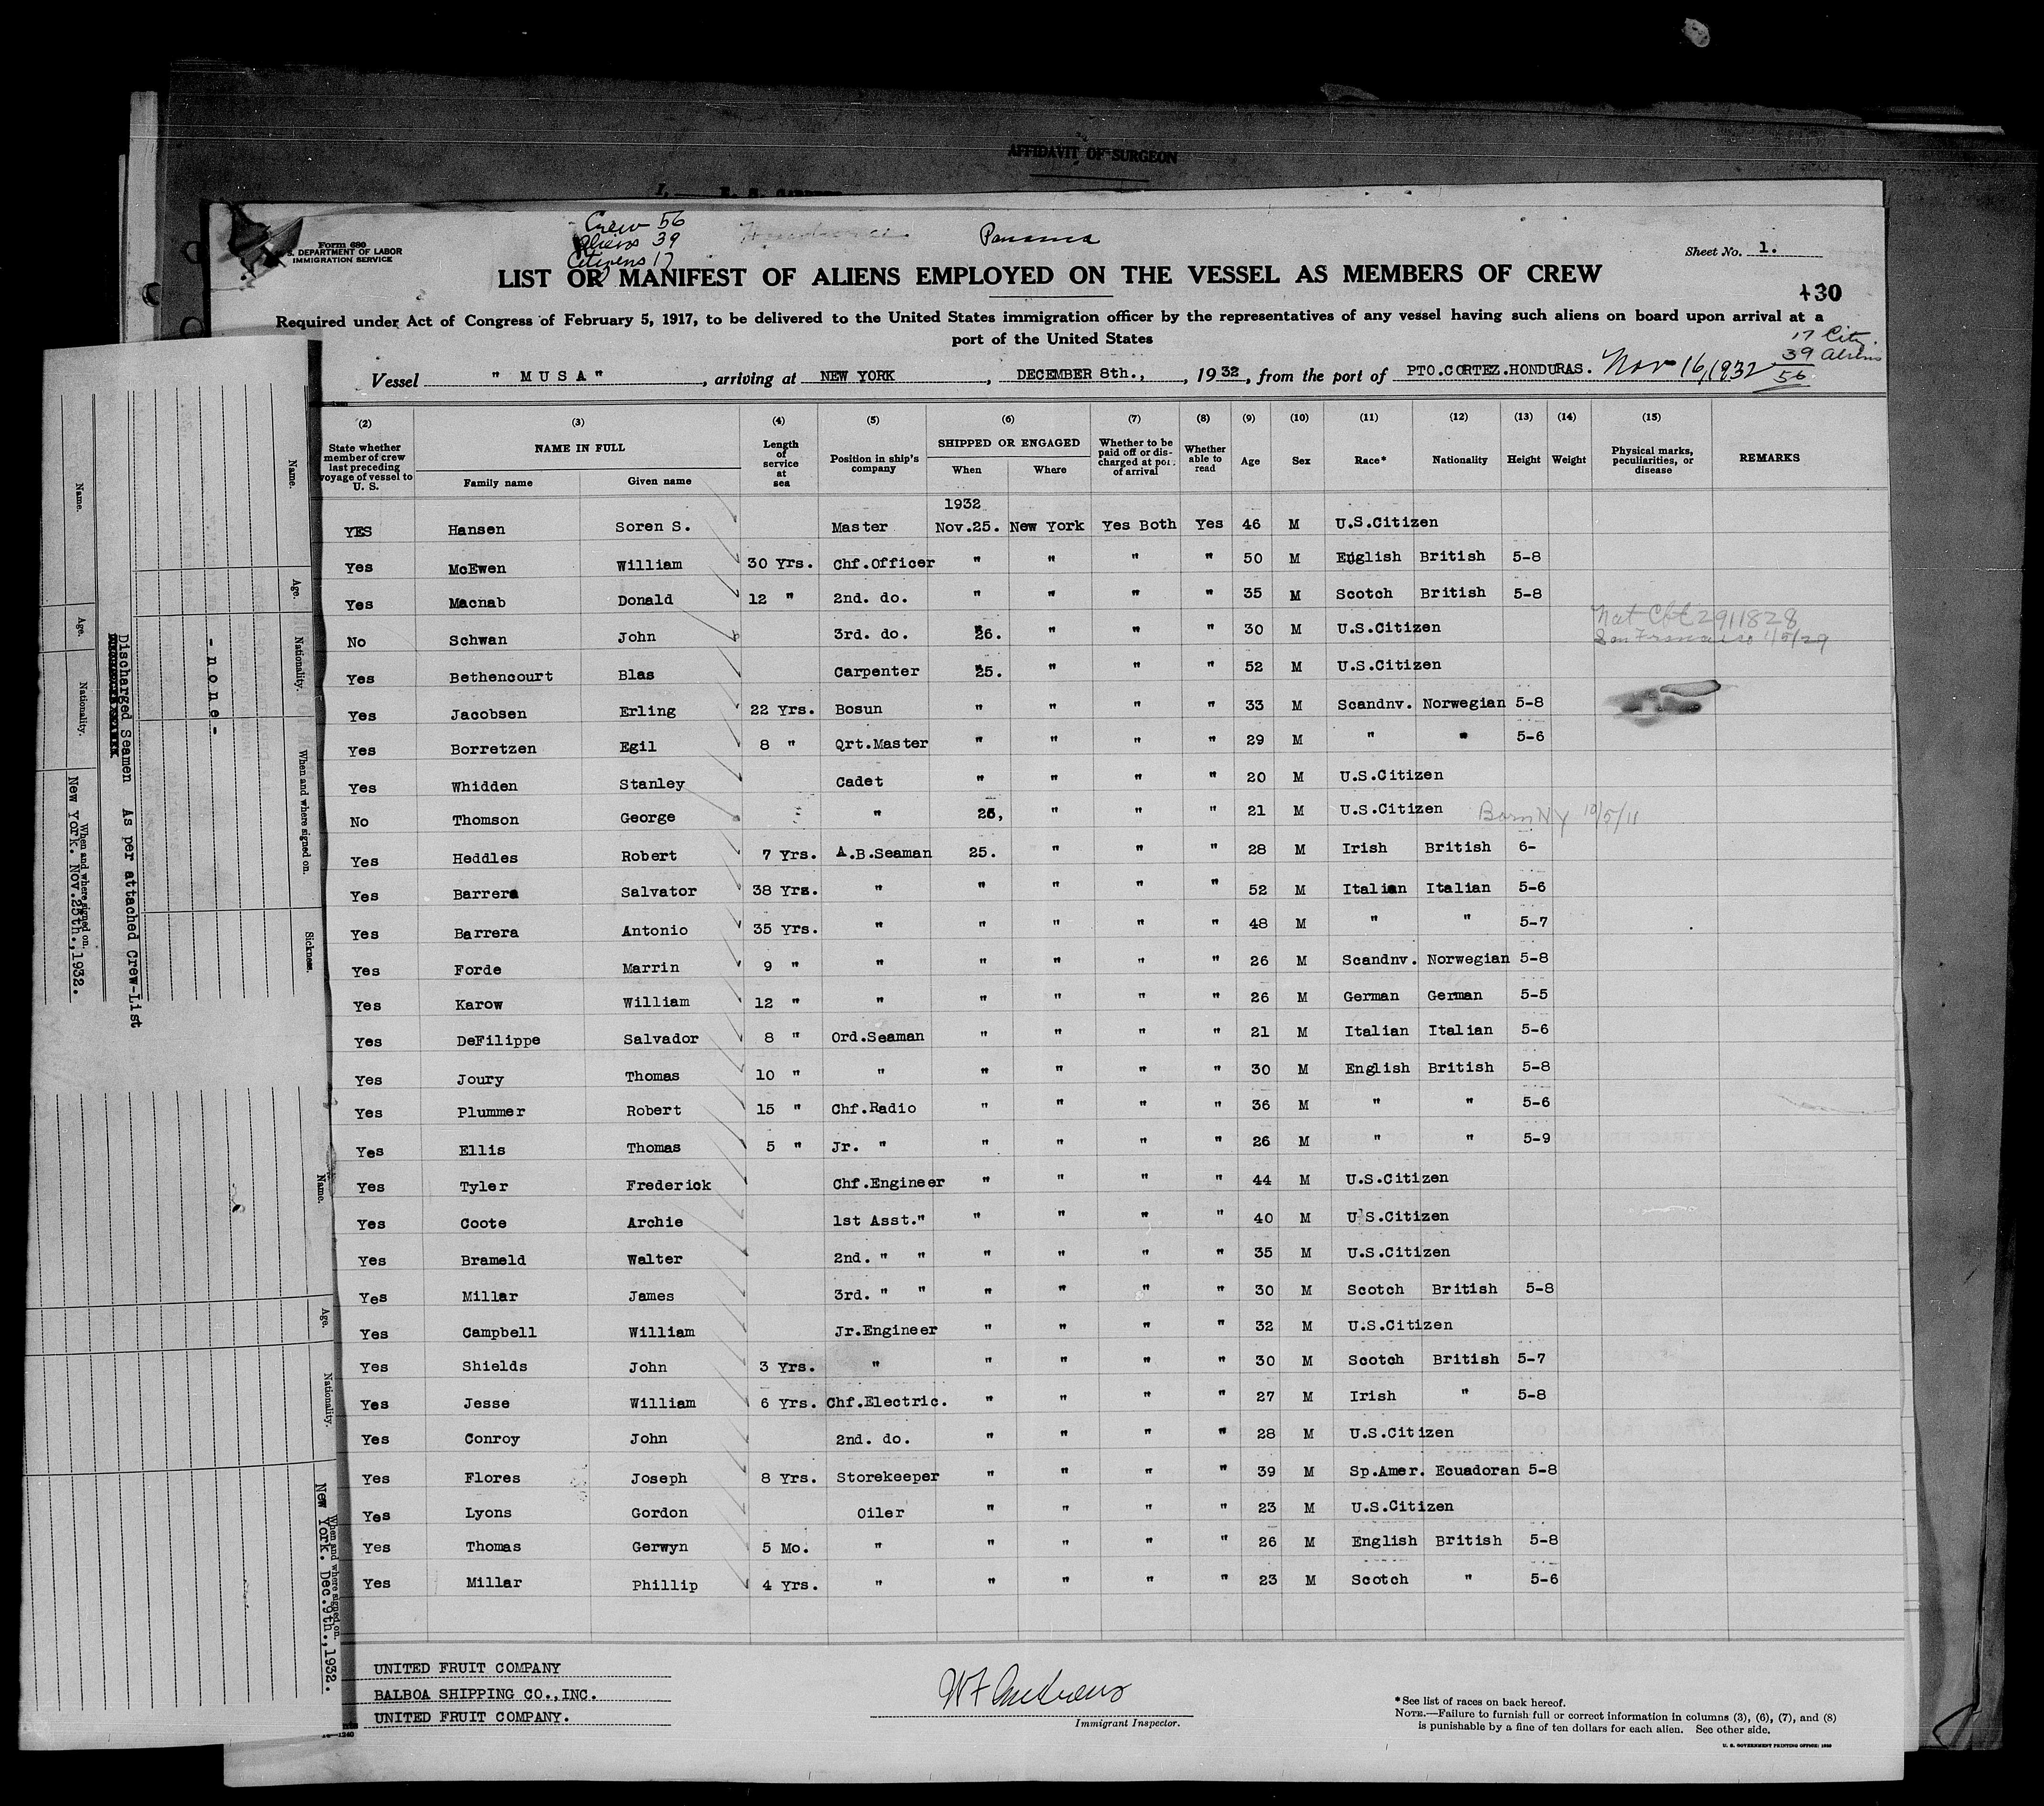 AFFIDAVIT OF SURGEON
I,
Form 680
S. DEPARTMENT OF LABOR
IMMIGRATION SERVICE
Crew 56
Aliens 39
Citizens 17
Panama
Sheet No. 1.
LIST OR MANIFEST OF ALIENS EMPLOYED ON THE VESSEL AS MEMBERS OF CREW
130
Required under Act of Congress of February 5, 1917, to be delivered to the United States immigration officer by the representatives of any vessel having such aliens on board upon arrival at a
port of the United States
17 City.
39 Aliens
56
Vessel "MUSA", arriving at NEW YORK, DECEMBER 8th., , 1932, from the port of PTO.CORTEZ.HONDURAS. Nov 16, 1932
(2) (3) (4) (5) (6) (7) (8) (9) (10) (11) (12) (13) (14) (15)
State whether member of crew last preceding voyage of vessel to U. S. | NAME IN FULL Family name Given name | Length of service at sea | Position in ship's company | SHIPPED OR ENGAGED When Where | Whether to be paid off or discharged at port of arrival | Whether able to read | Age | Sex | Race* | Nationality | Height | Weight | Physical marks, peculiarities, or disease | REMARKS
1932
YES Hansen Soren S. Master Nov.25. New York Yes Both Yes 46 M U.S.Citizen
Yes McEwen William 30 Yrs. Chf.Officer " " " " 50 M English British 5-8
Yes Macnab Donald 12 " 2nd. do. " " " " 35 M Scotch British 5-8
No Schwan John 3rd. do. 26. " " " 30 M U.S.Citizen Nat Cft 2911828
San Francisco 1/5/29
Yes Bethencourt Blas Carpenter 25. " " " 52 M U.S.Citizen
Yes Jacobsen Erling 22 Yrs. Bosun " " " " 33 M Scandnv. Norwegian 5-8
Yes Borretzen Egil 8 " Qrt.Master " " " " 29 M " " 5-6
Yes Whidden Stanley Cadet " " " " 20 M U.S.Citizen
No Thomson George " 26, " " " 21 M U.S.Citizen Born NY 10/5/11
Yes Heddles Robert 7 Yrs. A.B.Seaman 25. " " " 28 M Irish British 6-
Yes Barrera Salvator 38 Yrs. " " " " " 52 M Italian Italian 5-6
Yes Barrera Antonio 35 Yrs. " " " " " 48 M " " 5-7
Yes Forde Marrin 9 " " " " " " 26 M Scandnv. Norwegian 5-8
Yes Karow William 12 " " " " " " 26 M German German 5-5
Yes DeFilippe Salvador 8 " Ord.Seaman " " " " 21 M Italian Italian 5-6
Yes Joury Thomas 10 " " " " " " 30 M English British 5-8
Yes Plummer Robert 15 " Chf.Radio " " " " 36 M " " 5-6
Yes Ellis Thomas 5 " Jr. " " " " " 26 M " " 5-9
Yes Tyler Frederick Chf.Engineer " " " " 44 M U.S.Citizen
Yes Coote Archie 1st Asst." " " " " 40 M U.S.Citizen
Yes Brameld Walter 2nd. " " " " " " 35 M U.S.Citizen
Yes Millar James 3rd. " " " " " " 30 M Scotch British 5-8
Yes Campbell William Jr.Engineer " " " " 32 M U.S.Citizen
Yes Shields John 3 Yrs. " " " " " 30 M Scotch British 5-7
Yes Jesse William 6 Yrs. Chf.Electric. " " " " 27 M Irish " 5-8
Yes Conroy John 2nd. do. " " " " 28 M U.S.Citizen
Yes Flores Joseph 8 Yrs. Storekeeper " " " " 39 M Sp.Amer. Ecuadoran 5-8
Yes Lyons Gordon Oiler " " " " 23 M U.S.Citizen
Yes Thomas Gerwyn 5 Mo. " " " " " 26 M English British 5-8
Yes Millar Phillip 4 Yrs. " " " " " 23 M Scotch " 5-6
UNITED FRUIT COMPANY
BALBOA SHIPPING CO.,INC.
UNITED FRUIT COMPANY.
Immigrant Inspector.
*See list of races on back hereof.
NOTE.—Failure to furnish full or correct information in columns (3), (6), (7), and (8)
is punishable by a fine of ten dollars for each alien. See other side.
U. S. GOVERNMENT PRINTING OFFICE: 1930
Name. Age. Nationality. When and where signed on. Sickness.
- none -
Discharged Seamen As per attached Crew-List
Name. Age. Nationality. When and where signed on.
New York. Nov.25th.,1932.
Name. Age. Nationality. When and where signed on.
New York. Dec.9th.,1932.